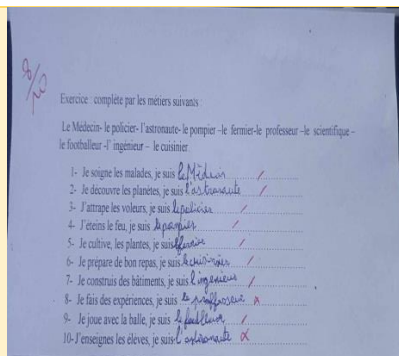 8/10
Exercice : complète par les métiers suivants :
Le Médecin- le policier- l'astronaute- le pompier –le fermier-le professeur –le scientifique –
le footballeur -l' ingénieur – le cuisinier.
1- Je soigne les malades, je suis le Médecin
2- Je découvre les planètes, je suis l'astronaute
3- J'attrape les voleurs, je suis le policier
4- J'éteins le feu, je suis le pompier
5- Je cultive, les plantes, je suis
6- Je prépare de bon repas, je suis le cuisinier
7- Je construis des bâtiments, je suis l'ingénieur
8- Je fais des expériences, je suis le proffesseur
9- Je joue avec la balle, je suis
10- J'enseignes les élèves, je suis l'astronaute